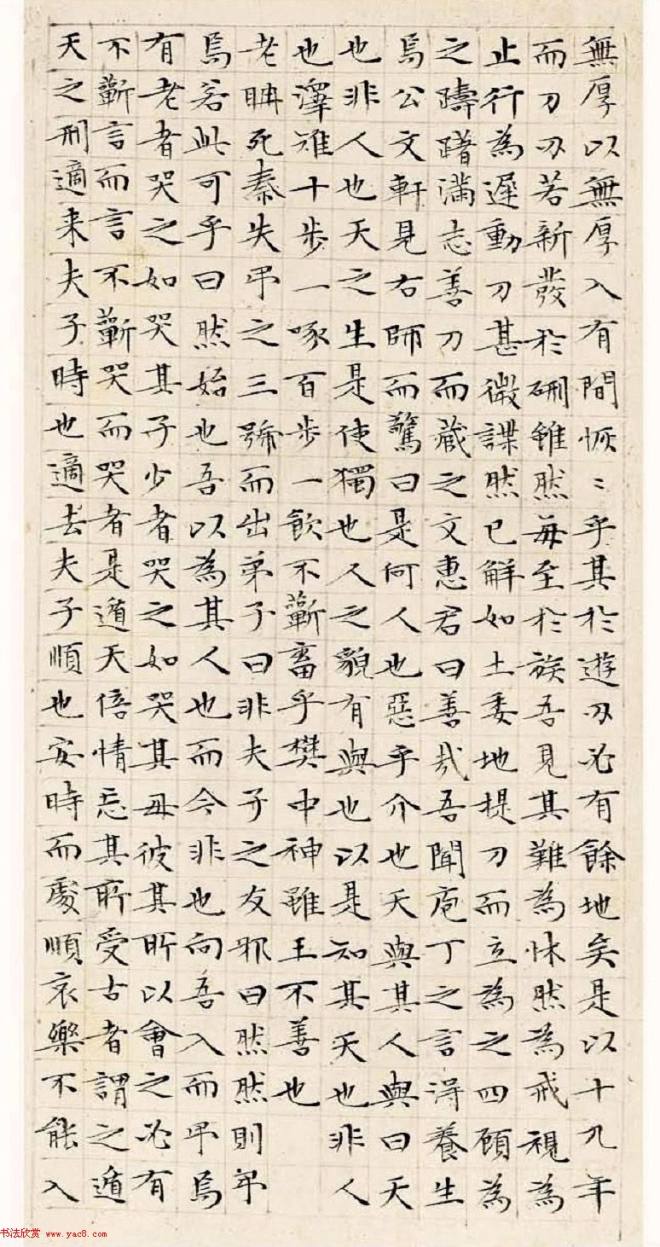 無厚以無厚入有間恢〻乎其於遊刃必有餘地矣是以十九年
而刀刃若新發於硎雖然每至於族吾見其難為怵然為戒視為
止行為遲動刀甚微諜然已解如土委地提刀而立為之四顧為
之躊躇滿志善刀而藏之文惠君曰善哉吾聞庖丁之言得養生
焉公文軒見右師而驚曰是何人也惡乎介也天與其人與曰天
也非人也天之生是使獨也人之貌有與也以是知其天也非人
也澤雉十步一啄百步一飲不蘄畜乎樊中神雖王不善也
老聃死秦失弔之三號而出弟子曰非夫子之友邪曰然然則弔
焉若此可乎曰然始也吾以為其人也而今非也向吾入而弔焉
有老者哭之如哭其子少者哭之如哭其母彼其所以會之必有
不蘄言而言不蘄哭而哭者是遁天倍情忘其所受古者謂之遁
天之刑適来夫子時也適去夫子順也安時而處順哀樂不能入
书法欣赏 www.yac8.com